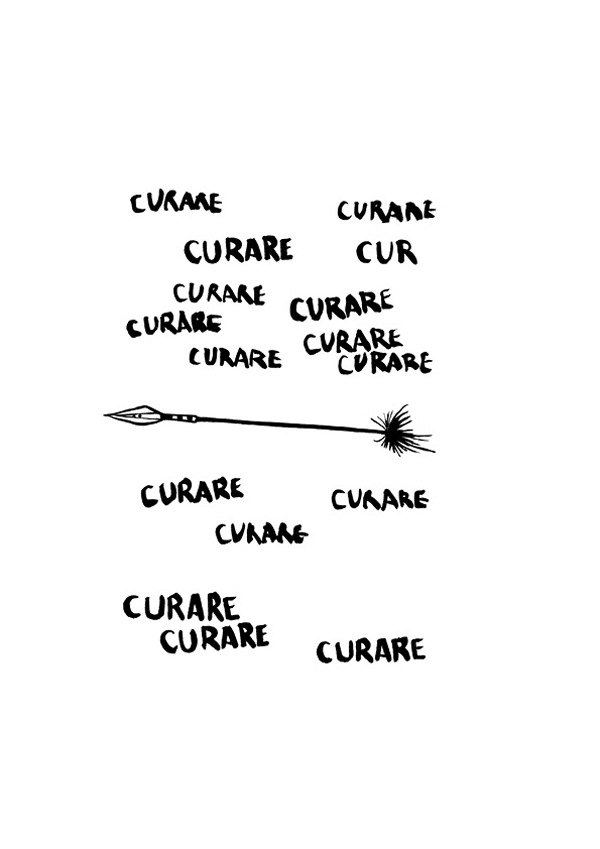 CURARE
CURARE
CURARE CUR
CURARE
CURARE
CURARE
CURARE
CURARE
CURARE
CURARE
CURARE
CURARE
CURARE
CURARE
CURARE
CURARE